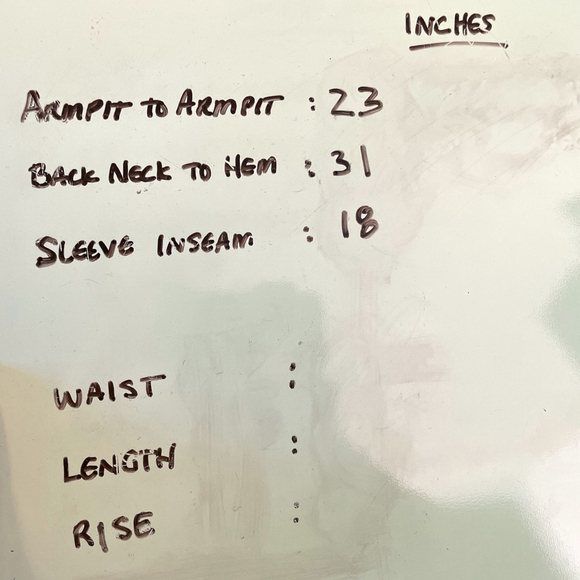 INCHES
ARMPIT TO ARMPIT : 23
BACK NECK TO HEM : 31
SLEEVE INSEAM : 18
WAIST :
LENGTH :
RISE :